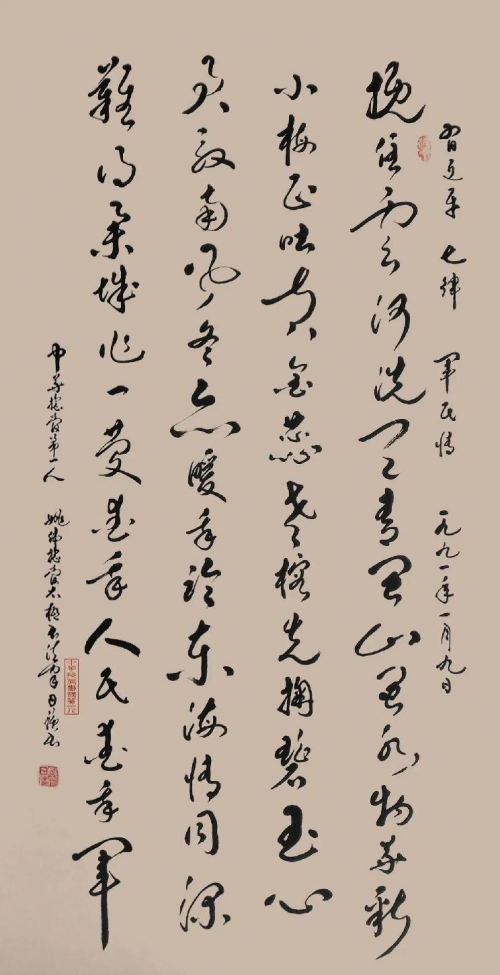 習近平 七律 軍民情 一九九一年一月九日
挽住雲河洗天青閩山閩水物華新
小梅正吐黄金蕊老榕先掬碧玉心
君馭南風冬亦暖我臨東海情同深
難得舉城作一慶愛我人民愛我軍
中華榜書第一人